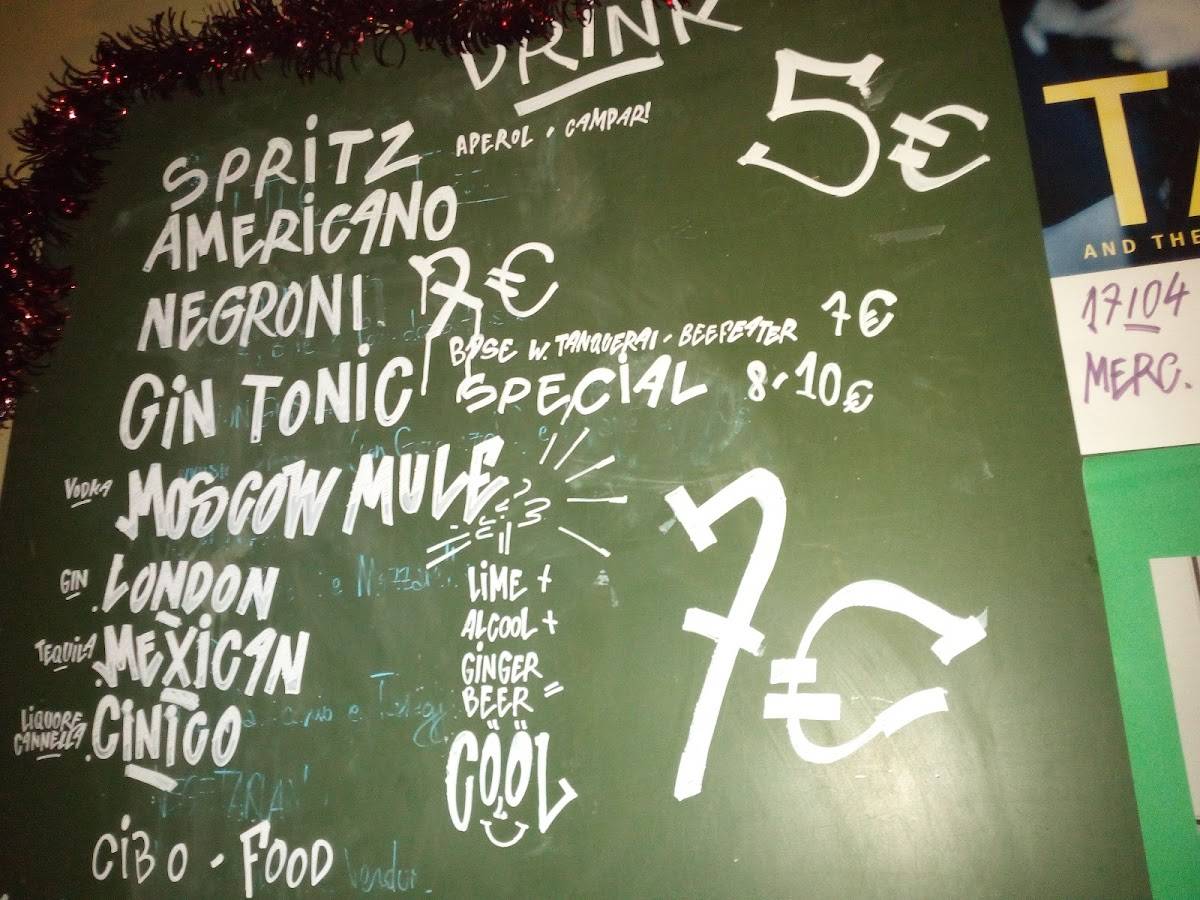 DRINK
SPRITZ APEROL · CAMPARI 5€
AMERICANO
NEGRONI 7€
BASE W. TANQUERAI - BEEFEATER 7€
GIN TONIC SPECIAL 8-10€
VODKA MOSCOW MULE
GIN LONDON
TEQUILA MEXICAN
LIQUORE CANNELLA CINICO
LIME +
ALCOOL +
GINGER
BEER =
CÖÖL
7€
CIBO - FOOD
AND THE
17/04
MERC.